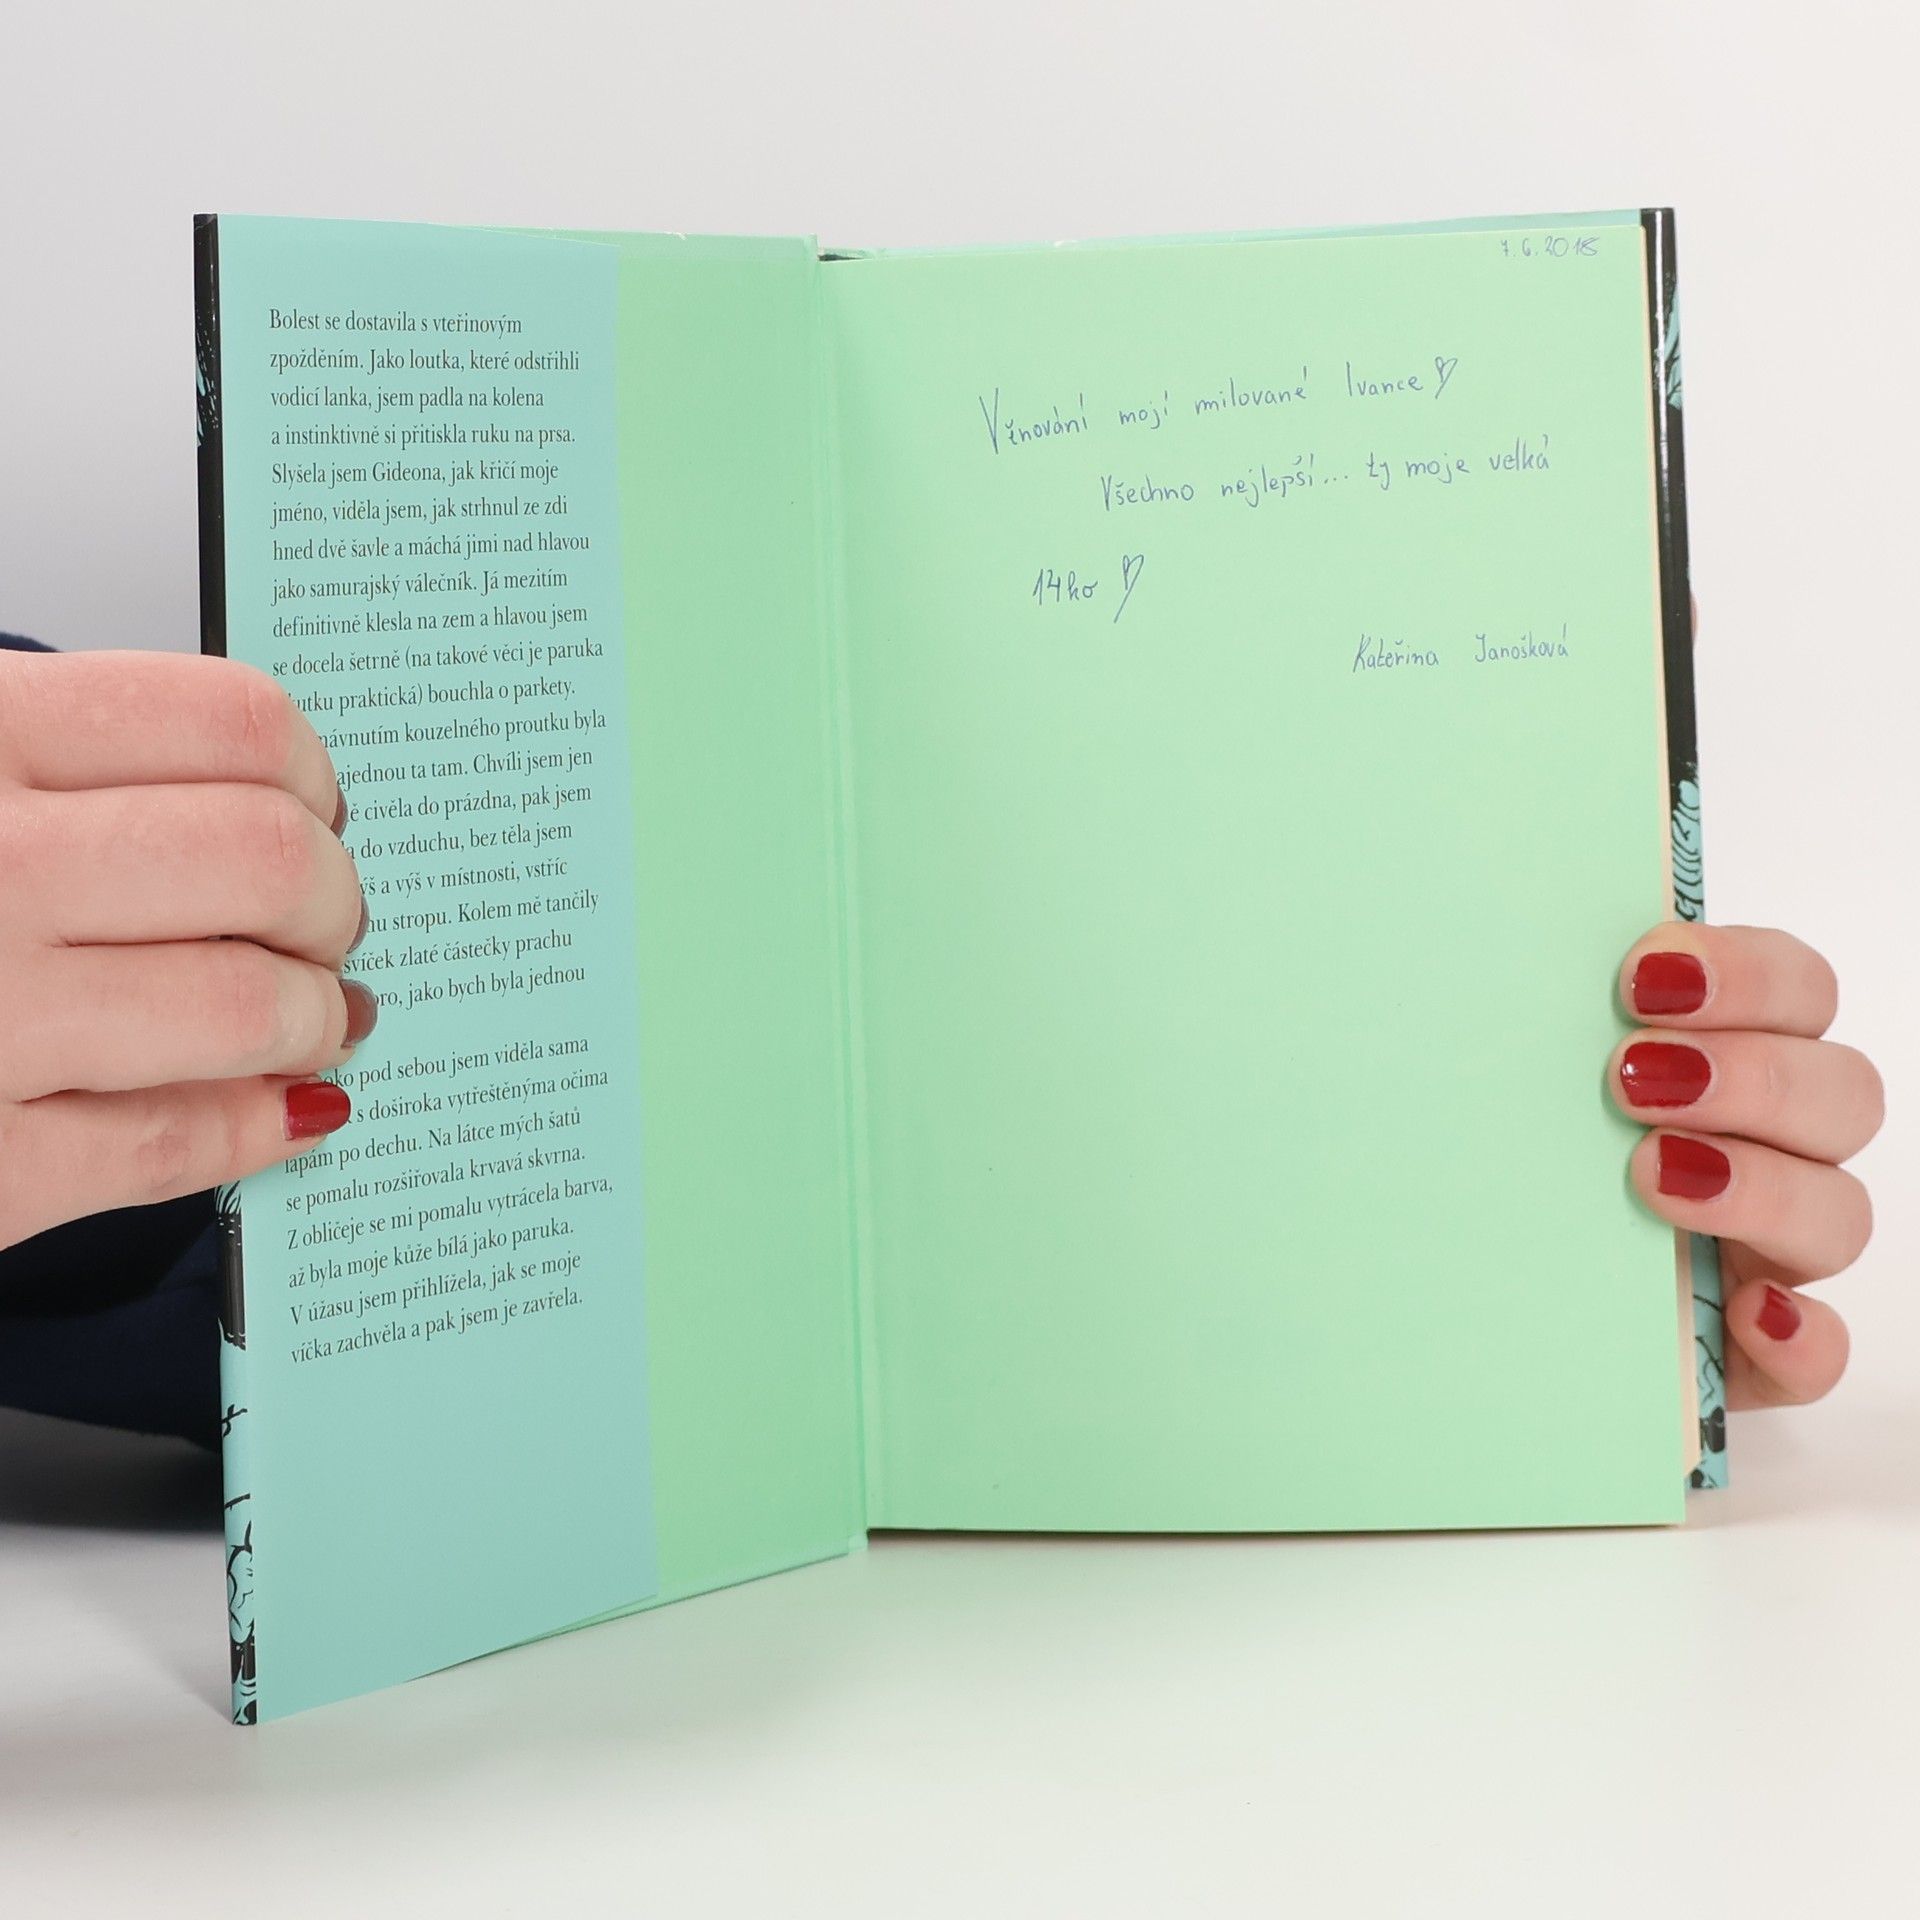 Bolest se dostavila s vteřinovým
zpožděním. Jako loutka, které odstřihli
vodicí lanka, jsem padla na kolena
a instinktivně si přitiskla ruku na prsa.
Slyšela jsem Gideona, jak křičí moje
jméno, viděla jsem, jak strhnul ze zdi
hned dvě šavle a máchá jimi nad hlavou
jako samurajský válečník. Já mezitím
definitivně klesla na zem a hlavou jsem
se docela šetrně (na takové věci je paruka
utku praktická) bouchla o parkety.
mávnutím kouzelného proutku byla
ajednou ta tam. Chvíli jsem jen
ě civěla do prázdna, pak jsem
a do vzduchu, bez těla jsem
ýš a výš v místnosti, vstříc
mu stropu. Kolem mě tančily
svíček zlaté částečky prachu
oro, jako bych byla jednou
oko pod sebou jsem viděla sama
s doširoka vytřeštěnýma očima
lapám po dechu. Na látce mých šatů
se pomalu rozšiřovala krvavá skvrna.
Z obličeje se mi pomalu vytrácela barva,
až byla moje kůže bílá jako paruka.
V úžasu jsem přihlížela, jak se moje
víčka zachvěla a pak jsem je zavřela.
7. 6. 2018
Věnování mojí milované Ivance
Všechno nejlepší... ty moje velká
14ko
Kateřina Janošková